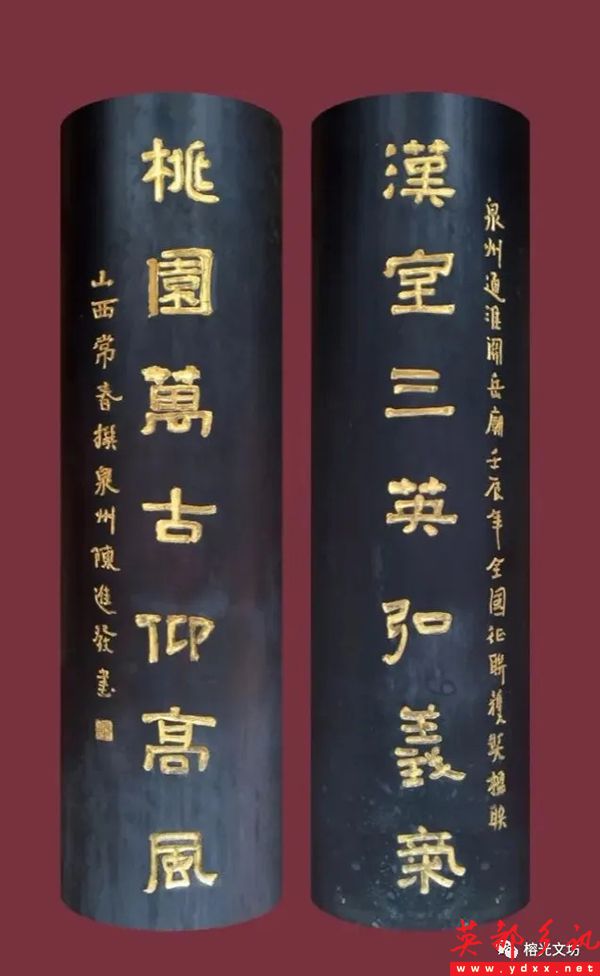 泉州通淮關岳廟壬辰年全國征聯獲獎楹聯
漢室三英弘義氣
桃園萬古仰高風
山西常春撰泉州陳進發書
榕光文坊
英都乡讯
www.ydxx.net